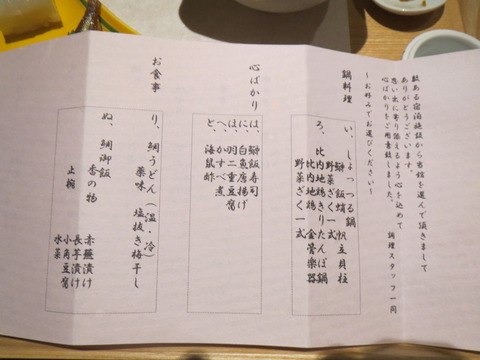 数ある宿泊施設から当館を選んで頂きまして
ありがとうございます。
思い出に寄り添えるよう心を込めて
心ばかりをご用意致しました。
調理スタッフ一同
〜お好みでお選びください〜
鍋料理
い、しょっつる鍋
鰰 飯蛸 帆立貝柱
野菜ざく一式
ろ、比内地鶏きりたんぽ鍋
比内地鶏 金管楽器
野菜ざく一式
心ばかり
は、鰰飯寿司
に、白魚唐揚げ
ほ、羽二重豆腐
へ、かすべ煮
と、海鼠酢
お食事
り、鯛うどん(温・冷)
薬味 塩抜き梅干し
ぬ、鯛御飯
香の物
赤蕪漬け
長芋漬け
止椀
小角豆腐
水菜